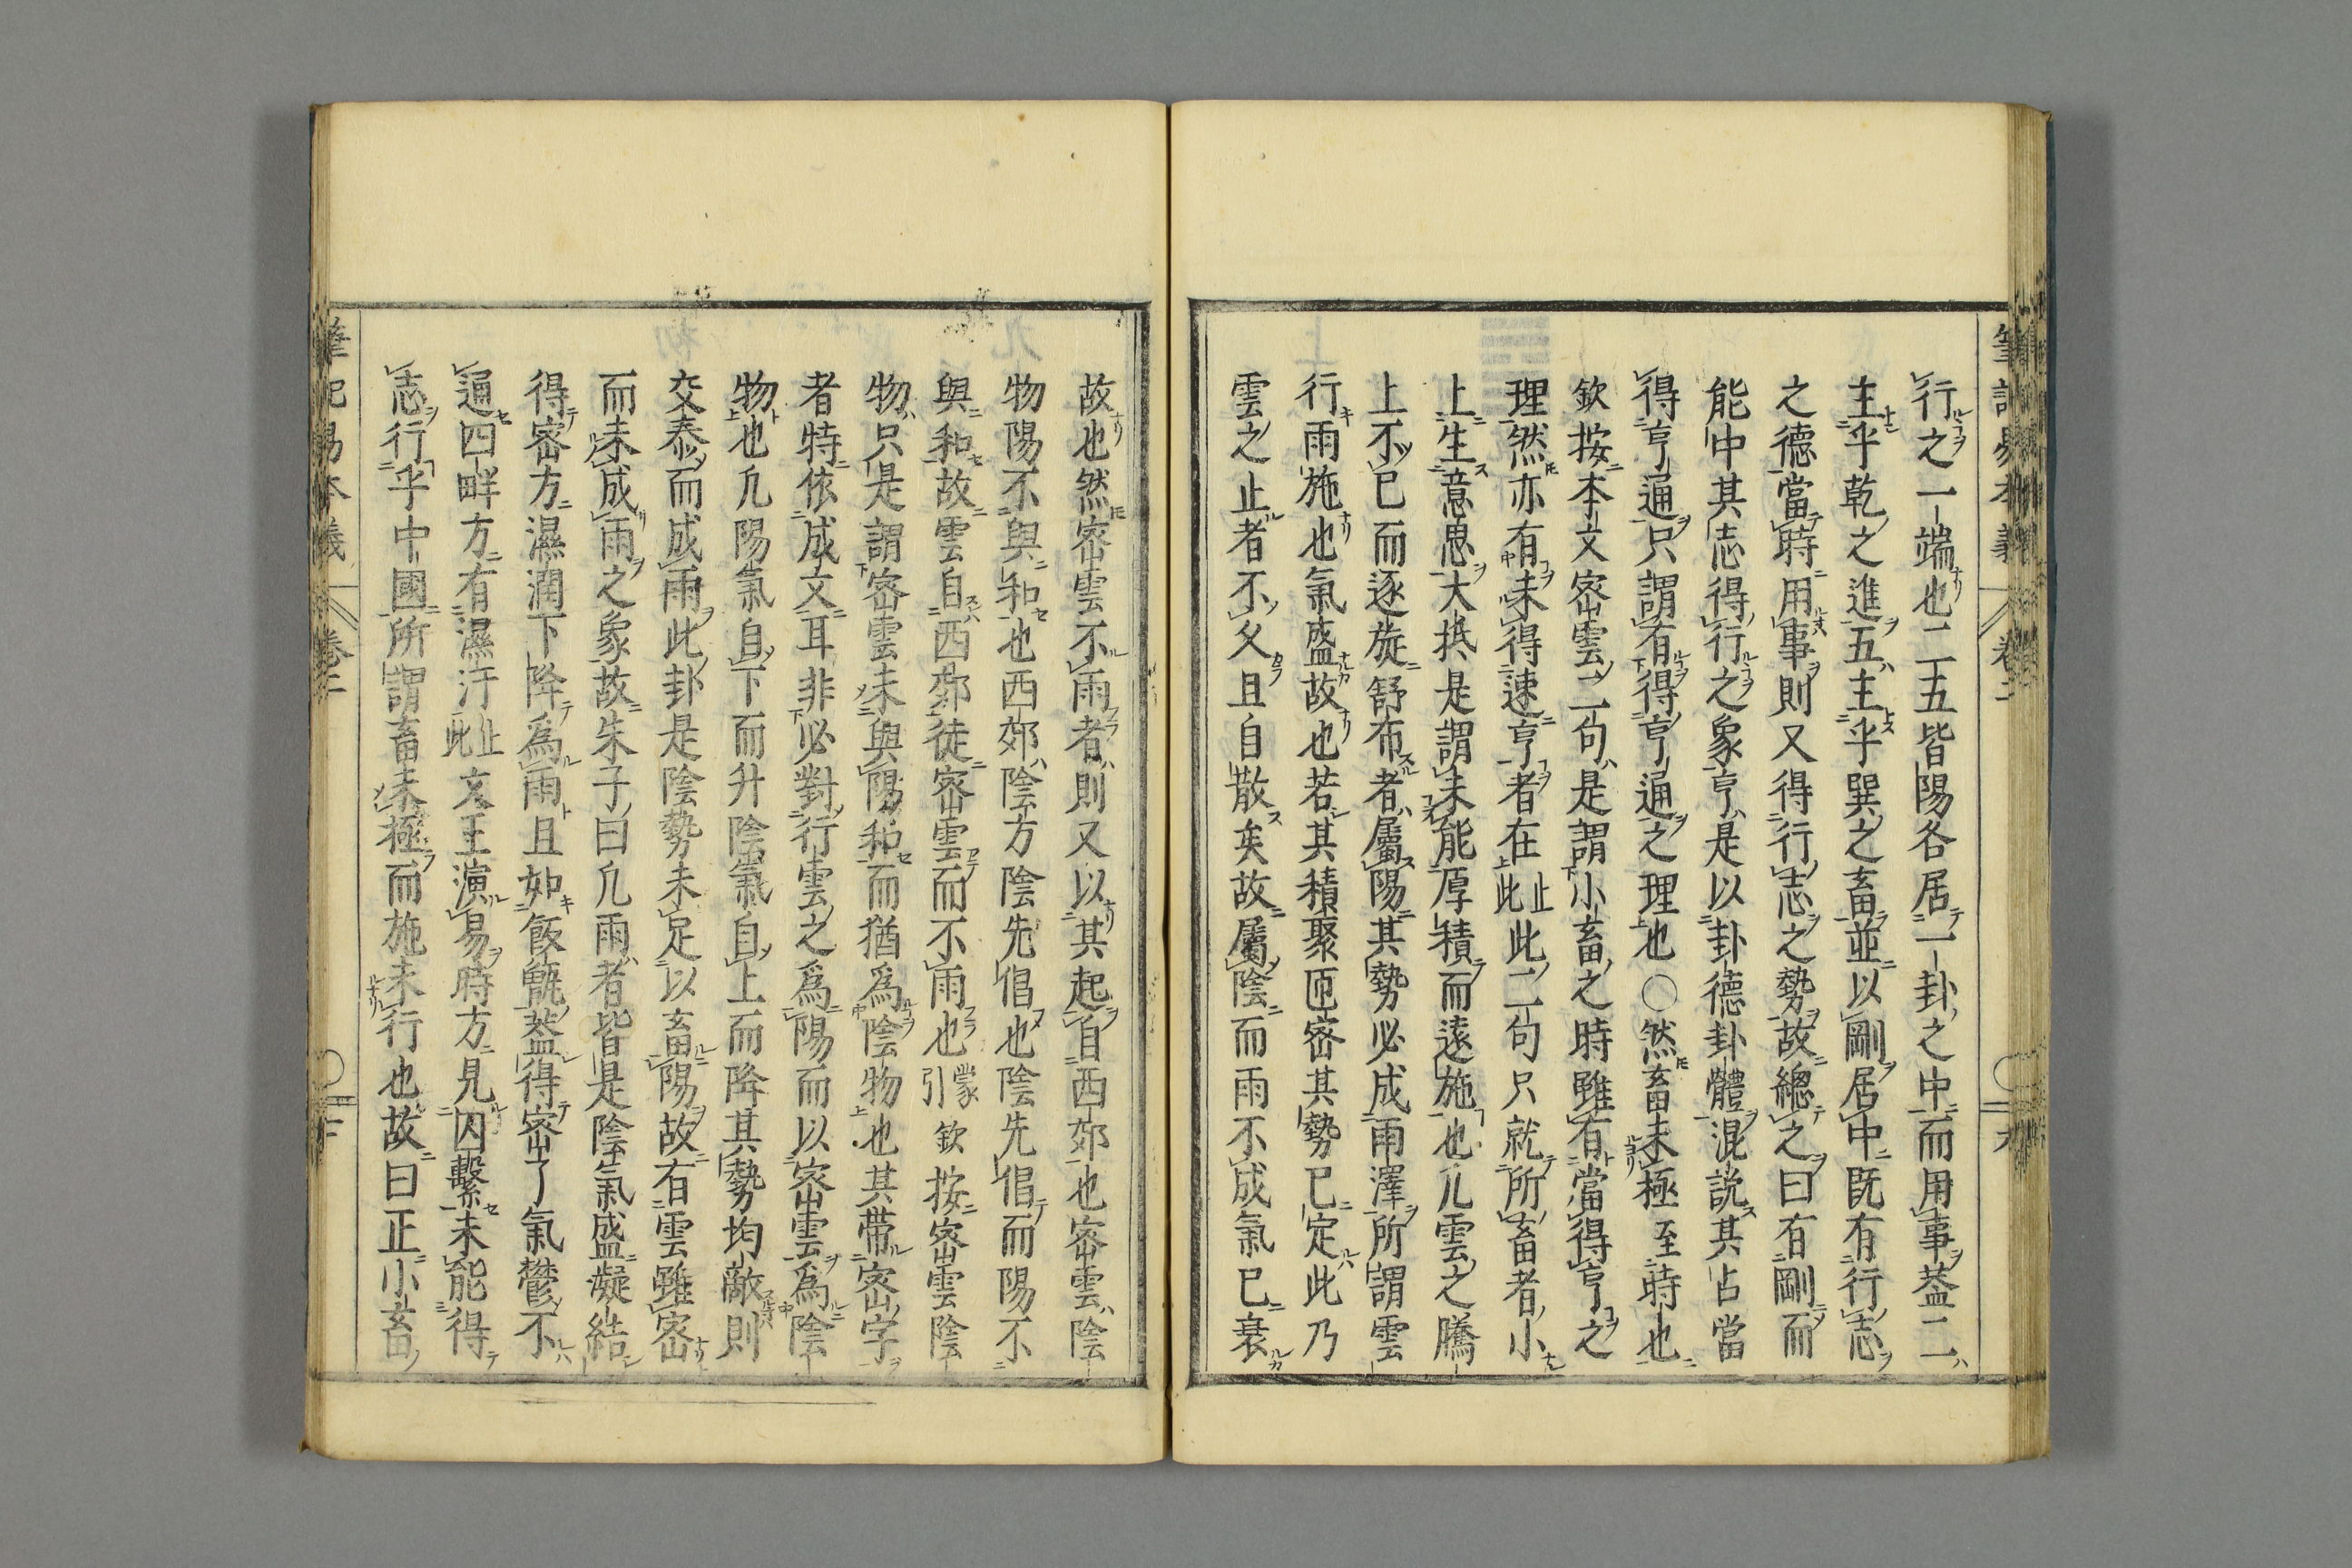 行之一端也二五皆陽各居一卦之中而用事葢二
主乎乾之進五主乎巽之畜並以剛居中既有行志
之德當時用事則又得行志之勢故緫之曰有剛而
能中其志得行之象亨是以卦德卦體混說其占當
得亨通只謂有得亨通之理也○然畜未極至時也
欽按本文密雲二句是謂小畜之時雖有當得亨之
理然亦有未得速亨者在此止此二句只就所畜者小
上生意思大抵是謂未能厚積而遠施也凡雲之騰
上不已而逐旋舒布者屬陽其勢必成雨澤所謂雲
行雨施也氣盛故也若其積聚匝密其勢已定此乃
雲之止者不久且自散矣故屬陰而雨不成氣已衰
筆記易本義 卷二
故也然密雲不雨者則又以其起自西郊也密雲陰
物陽不與和也西郊陰方陰先倡也陰先倡而陽不
與和故雲自西郊徒密雲而不雨也蒙引欽按密雲陰
物只是謂密雲未與陽和而猶爲陰物也其帶密字
者特依成文耳非必對行雲之爲陽而以密雲爲陰
物也凡陽氣自下而升陰氣自上而降其勢均敵則
交泰而成雨此卦是陰勢未足以畜陽故有雲雖密
而未成雨之象故朱子曰凡雨者皆是陰氣盛凝結
得密方濕潤下降爲雨且如飯甑葢得密了氣鬱不
通四畔方有濕汗止此文王演易時方見囚繫未能得
志行乎中國所謂畜未極而施未行也故曰正小畜
筆記易本義 卷二